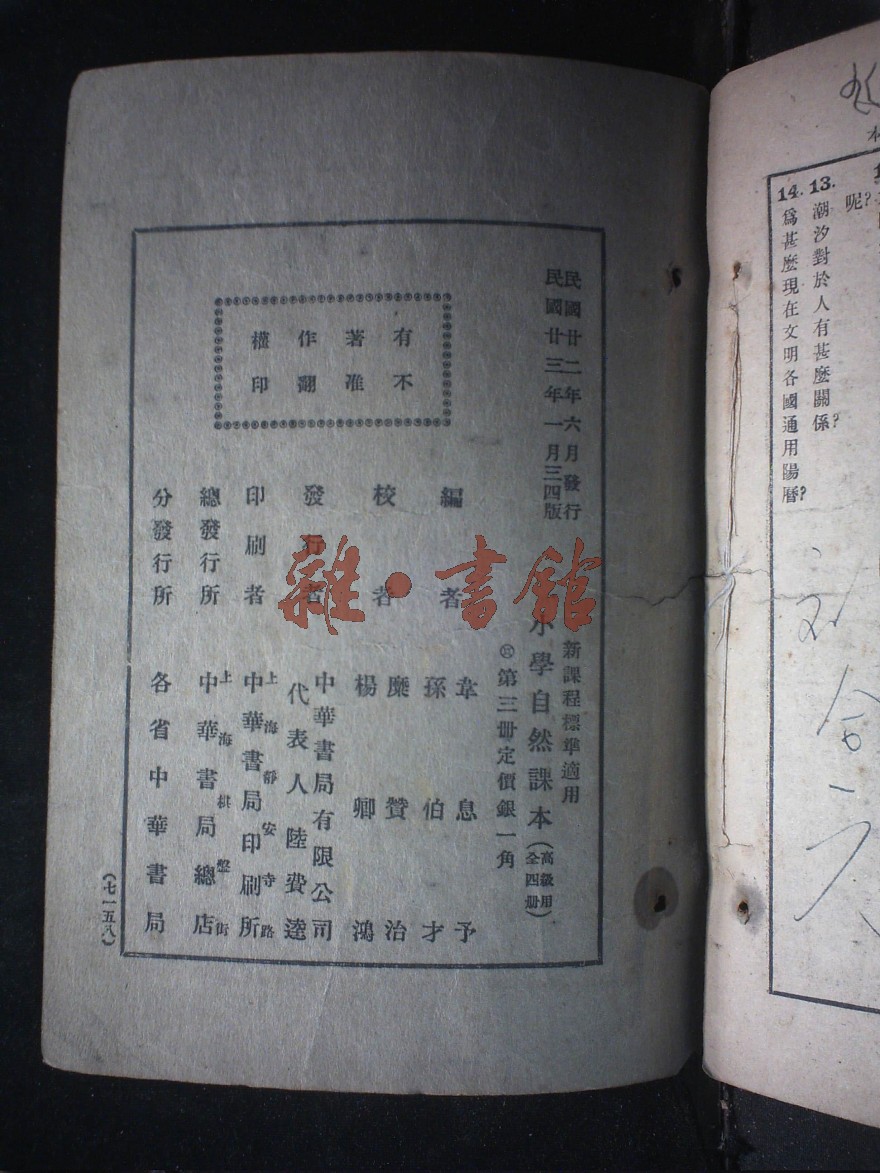 14. 13.
呢?
潮汐對於人有甚麼關係?
爲甚麼現在文明各國通用陽曆?
民國廿二年六月發行
民國廿三年一月三四版
新課程標準適用
小學自然課本(高級用全四册)
第三册定價銀一角
有不
著准
作翻
權印
編者 韋息予
孫伯才
校者 糜贊治
楊卿鴻
發行者 中華書局有限公司
代表人陸費逵
印刷者 上海靜安寺路
中華書局印刷所
總發行所 上海棋盤街
中華書局總店
分發行所 各省中華書局
(七一五八)
雜·書館